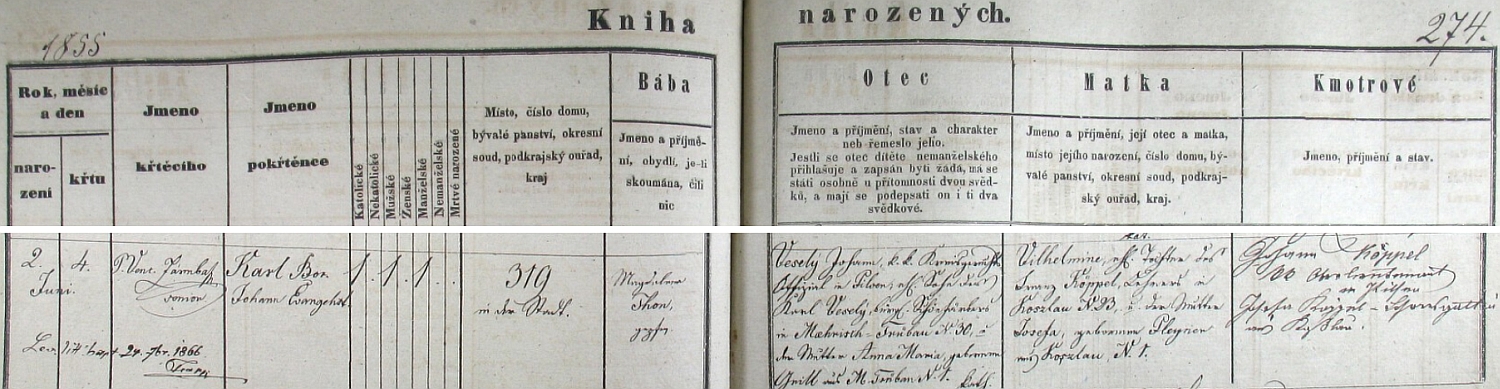 Kniha
narozených.
1855
274.
Rok, měsíc
a den
naro-
zení
křtu
Jmeno
křtěcího
Jmeno
pokřténce
Katolické
Nekatolické
Mužské
Ženské
Manželské
Nemanželské
Mrtvé narozené
Místo, číslo domu,
bývalé panství, okresní
soud, podkrajský ouřad,
kraj
Bába
Jmeno a příjmě-
ní, obydlí, je-li
skoumána, čili
nic
Otec
Jmeno a příjmění, stav a charakter
neb řemeslo jeho.
Jestli se otec dítěte nemanželského
přihlašuje a zapsán býti žádá, má se
státi osobně u přítomnosti dvou svěd-
ků, a mají se podepsati on i ti dva
svědkové.
Matka
Jmeno a příjmění, její otec a matka,
místo jejího narození, číslo domu, bý-
valé panství, okresní soud, podkraj-
ský ouřad, kraj.
Kmotrové
Jmeno, příjmění a stav.
2.
Juni.
4.
Karl Bon
Johann Evangelist
1. 1. 1.
319
in der Stadt.
Magdalena
Thon,
gepr.
24. 7br. 1866
Vesely Johann, k. k. Kreisgerichts
Offizial in Pilsen, ehl. Sohn des
Karl Vesely, bürgl.
in Mährisch-Trübau N. 30, u
der Mutter Anna Maria, geborenen
aus M. Trübau N. 1. kath.
kat.
Vilhelmine, ehl. Tochter des
Franz Köppel, Lehrers in
Kozlau N. 23, u. der Mutter
Josefa, geborenen
aus Kozlau, N. 1.
Johann Köppel
kk Oberlieutenant
in Pilsen
Josefa Köppel - Lehrersgattin
aus